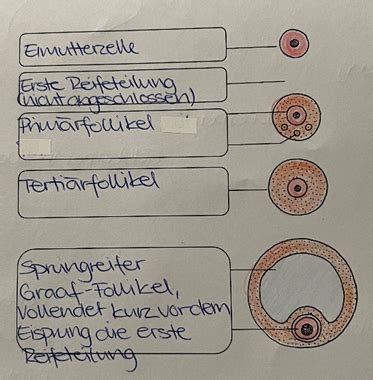 Eimutterzelle
Erste Reifeteilung
(nicht abgeschlossen)
Primärfollikel
Tertiärfollikel
Sprungreifer
Graaf-Follikel,
vollendet kurz vor dem
Eisprung die erste
Reifeteilung